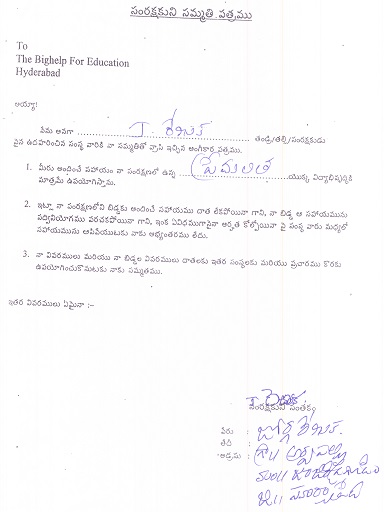 సంరక్షకుని సమ్మతి పత్రము
To
The Bighelp For Education
Hyderabad
అయ్యా!
నేను అనగా ........ J. రేణుక ........ తండ్రి/తల్లి/సంరక్షకుడు
పైన ఉదహరించిన సంస్థ వారికి నా సమ్మతితో వ్రాసి ఇచ్చిన అంగీకార పత్రము.
1. మీరు అందించే సహాయం నా సంరక్షణలో ఉన్న ప్రేమలత ........ యొక్క విద్యాభివృద్ధికి
మాత్రమే ఉపయోగిస్తాను.
2. ఇట్లా నా సంరక్షణలోని బిడ్డకు అందించే సహాయము దాత లేకపోయినా గాని, నా బిడ్డ ఆ సహాయమును
సద్వినియోగము పరచకపోయినా గాని, ఇంక ఏవిధముగానైనా అర్హత కోల్పోయినా పై సంస్థ వారు మధ్యలో
సహాయమును ఆపివేయుటకు నాకు అభ్యంతరము లేదు.
3. నా వివరములు మరియు నా బిడ్డల వివరములు దాతలకు ఇతర సంస్థలకు మరియు ప్రచారము కొరకు
ఉపయోగించుకొనుటకు నాకు సమ్మతము.
ఇతర వివరములు ఏమైనా :-
J. రేణుక
సంరక్షకుని సంతకం
పేరు : రేణుక.
తేది :
అడ్రసు :